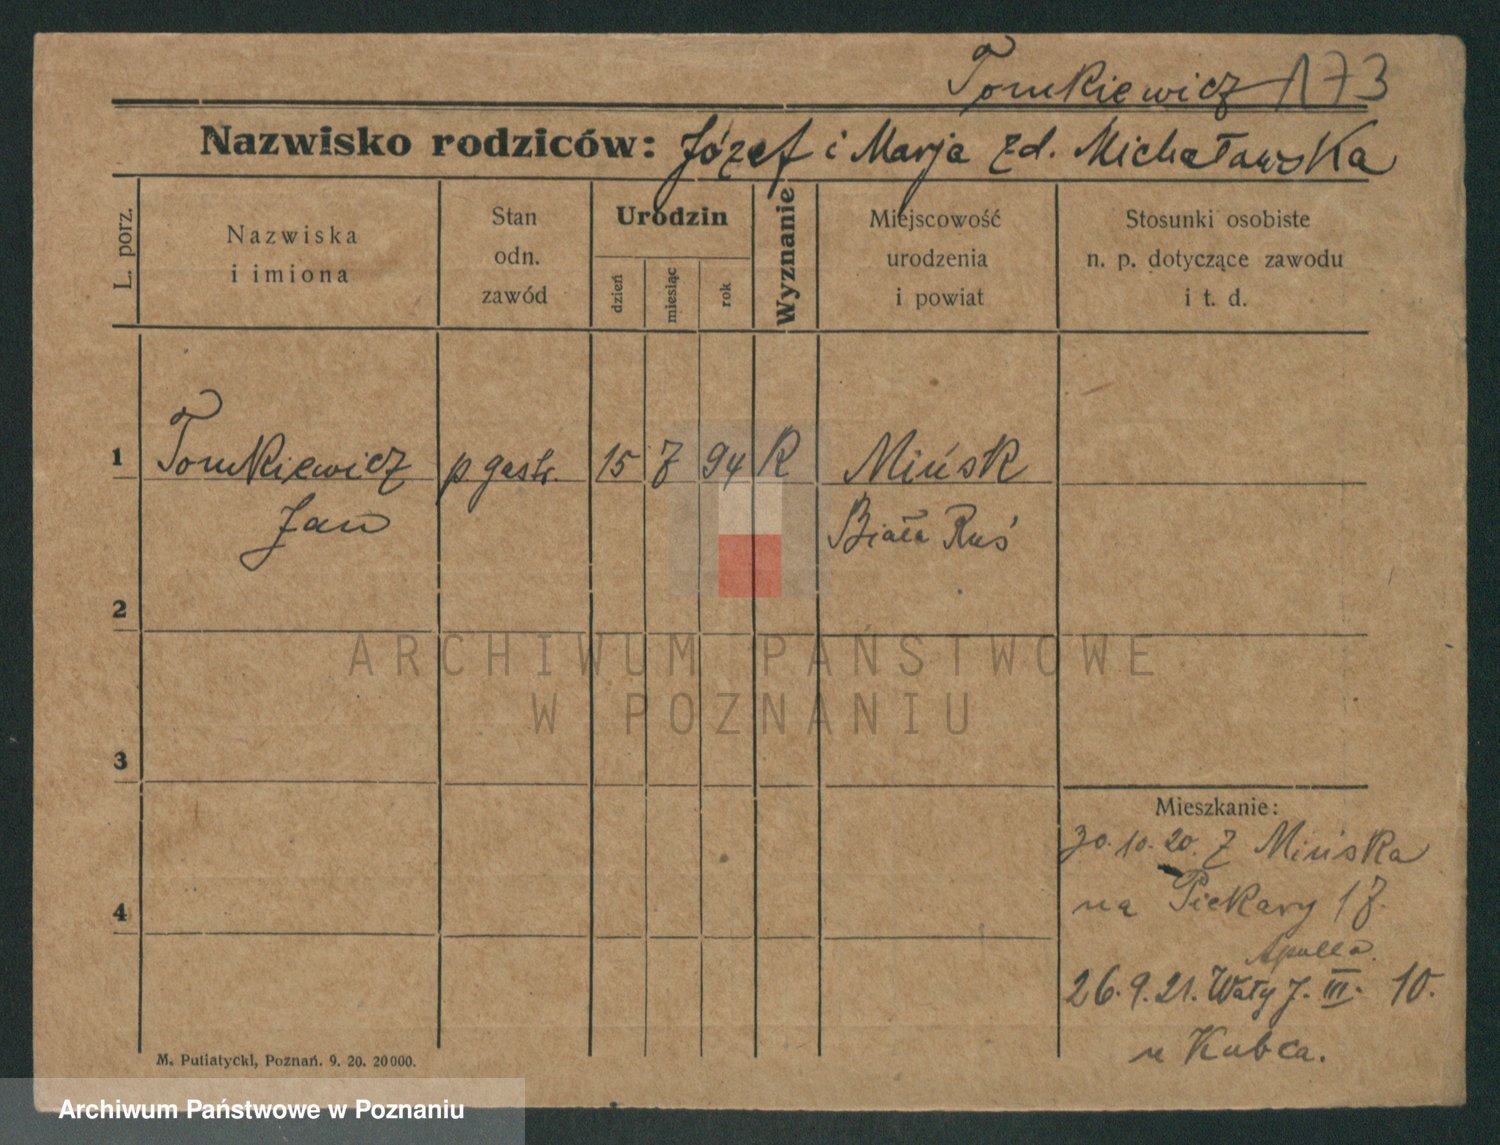 Tomkiewicz 173
Nazwisko rodziców: Józef i Marja zd. Michaławska
L. porz.
Nazwiska
i imiona
Stan
odn.
zawód
Urodzin
dzień
miesiąc
rok
Wyznanie
Miejscowość
urodzenia
i powiat
Stosunki osobiste
n. p. dotyczące zawodu
i t. d.
1 Tomkiewicz p. gastr. 15 7 94 R Mińsk
Jan Biała Ruś
2
ARCHIWUM PAŃSTWOWE
W POZNANIU
3
Mieszkanie:
30.10.20. Z Mińska
4
na Piekary 17.
Apollo.
26.9.21. Wały J. III. 10.
u Kubca.
M. Putiatycki, Poznań. 9. 20. 20000.
Archiwum Państwowe w Poznaniu